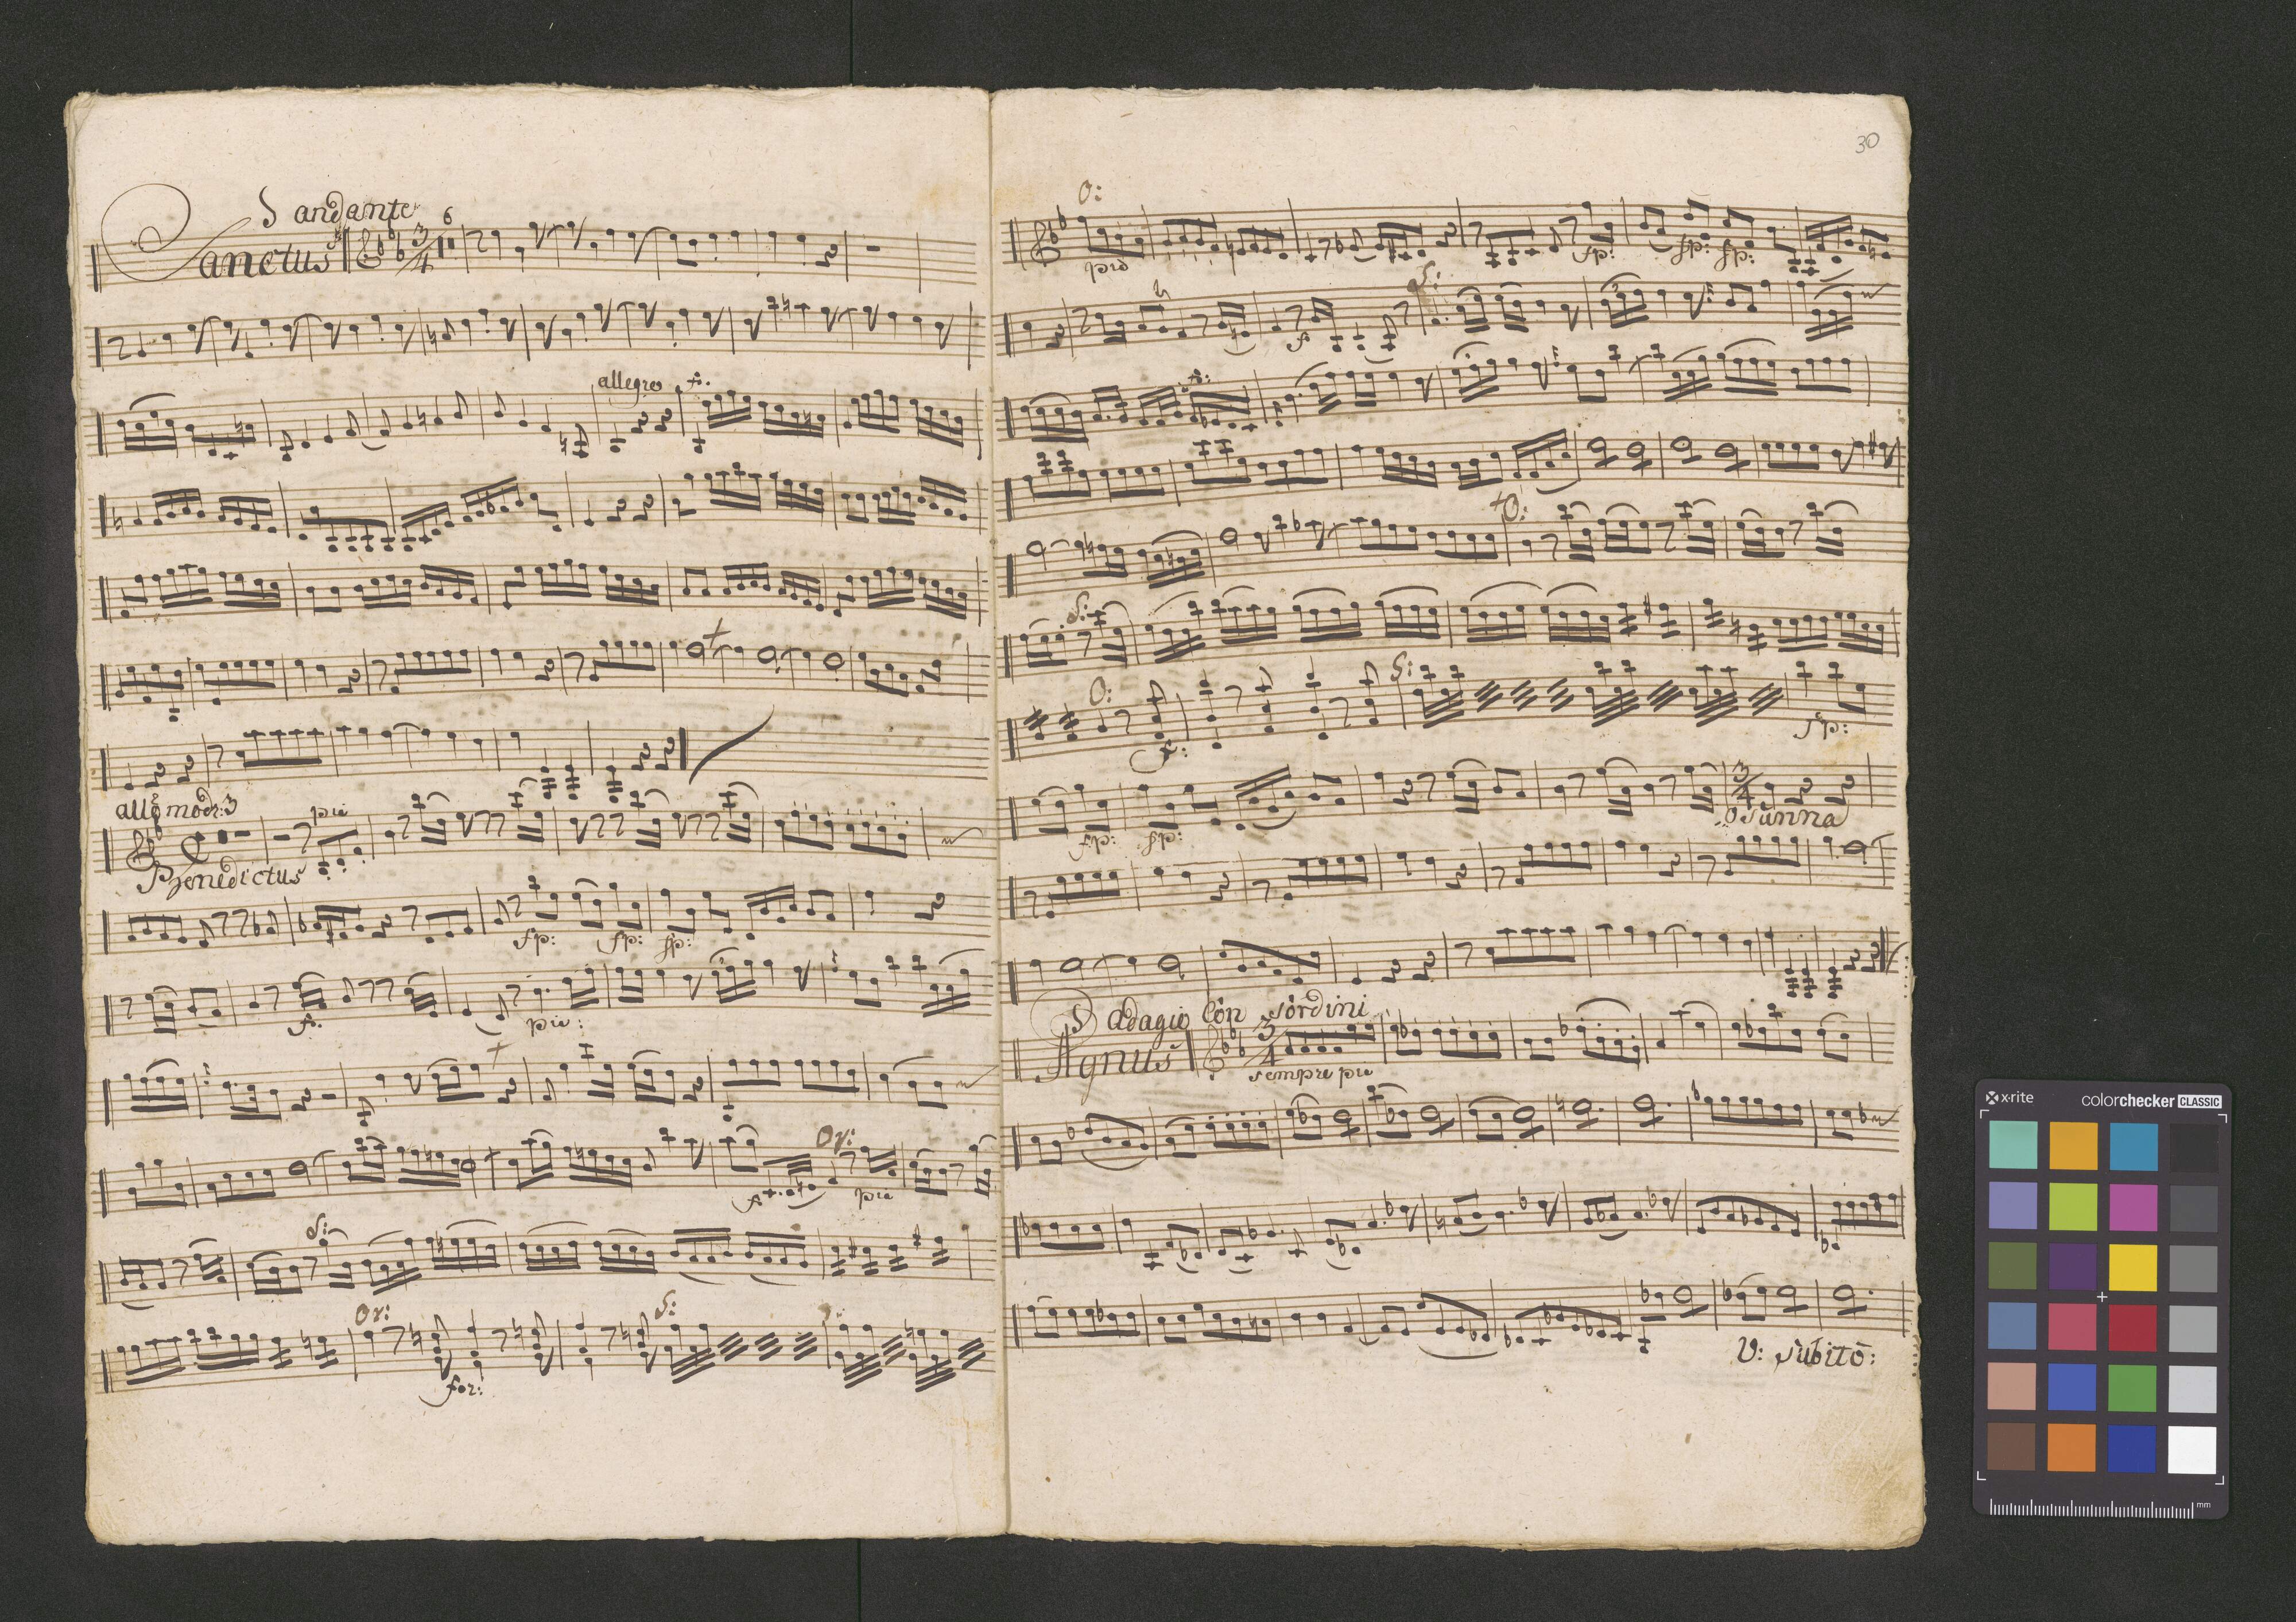 andante
Sanctus 3/4 6
allegro f.
allo mod: 3
pia
Benedictus
fp: fp: fp:
f. pia:
Or:
f pia
S:
Or: S:
for:
30
O:
pia fp: fp: fp:
S:
f
f:
3
O:
S:
O: S:
f: fp:
fp: fp: 3/4
osanna
adagio Con sordini
Agnus 3/4
sempre pia
V: subito:
x-rite colorchecker CLASSIC
mm